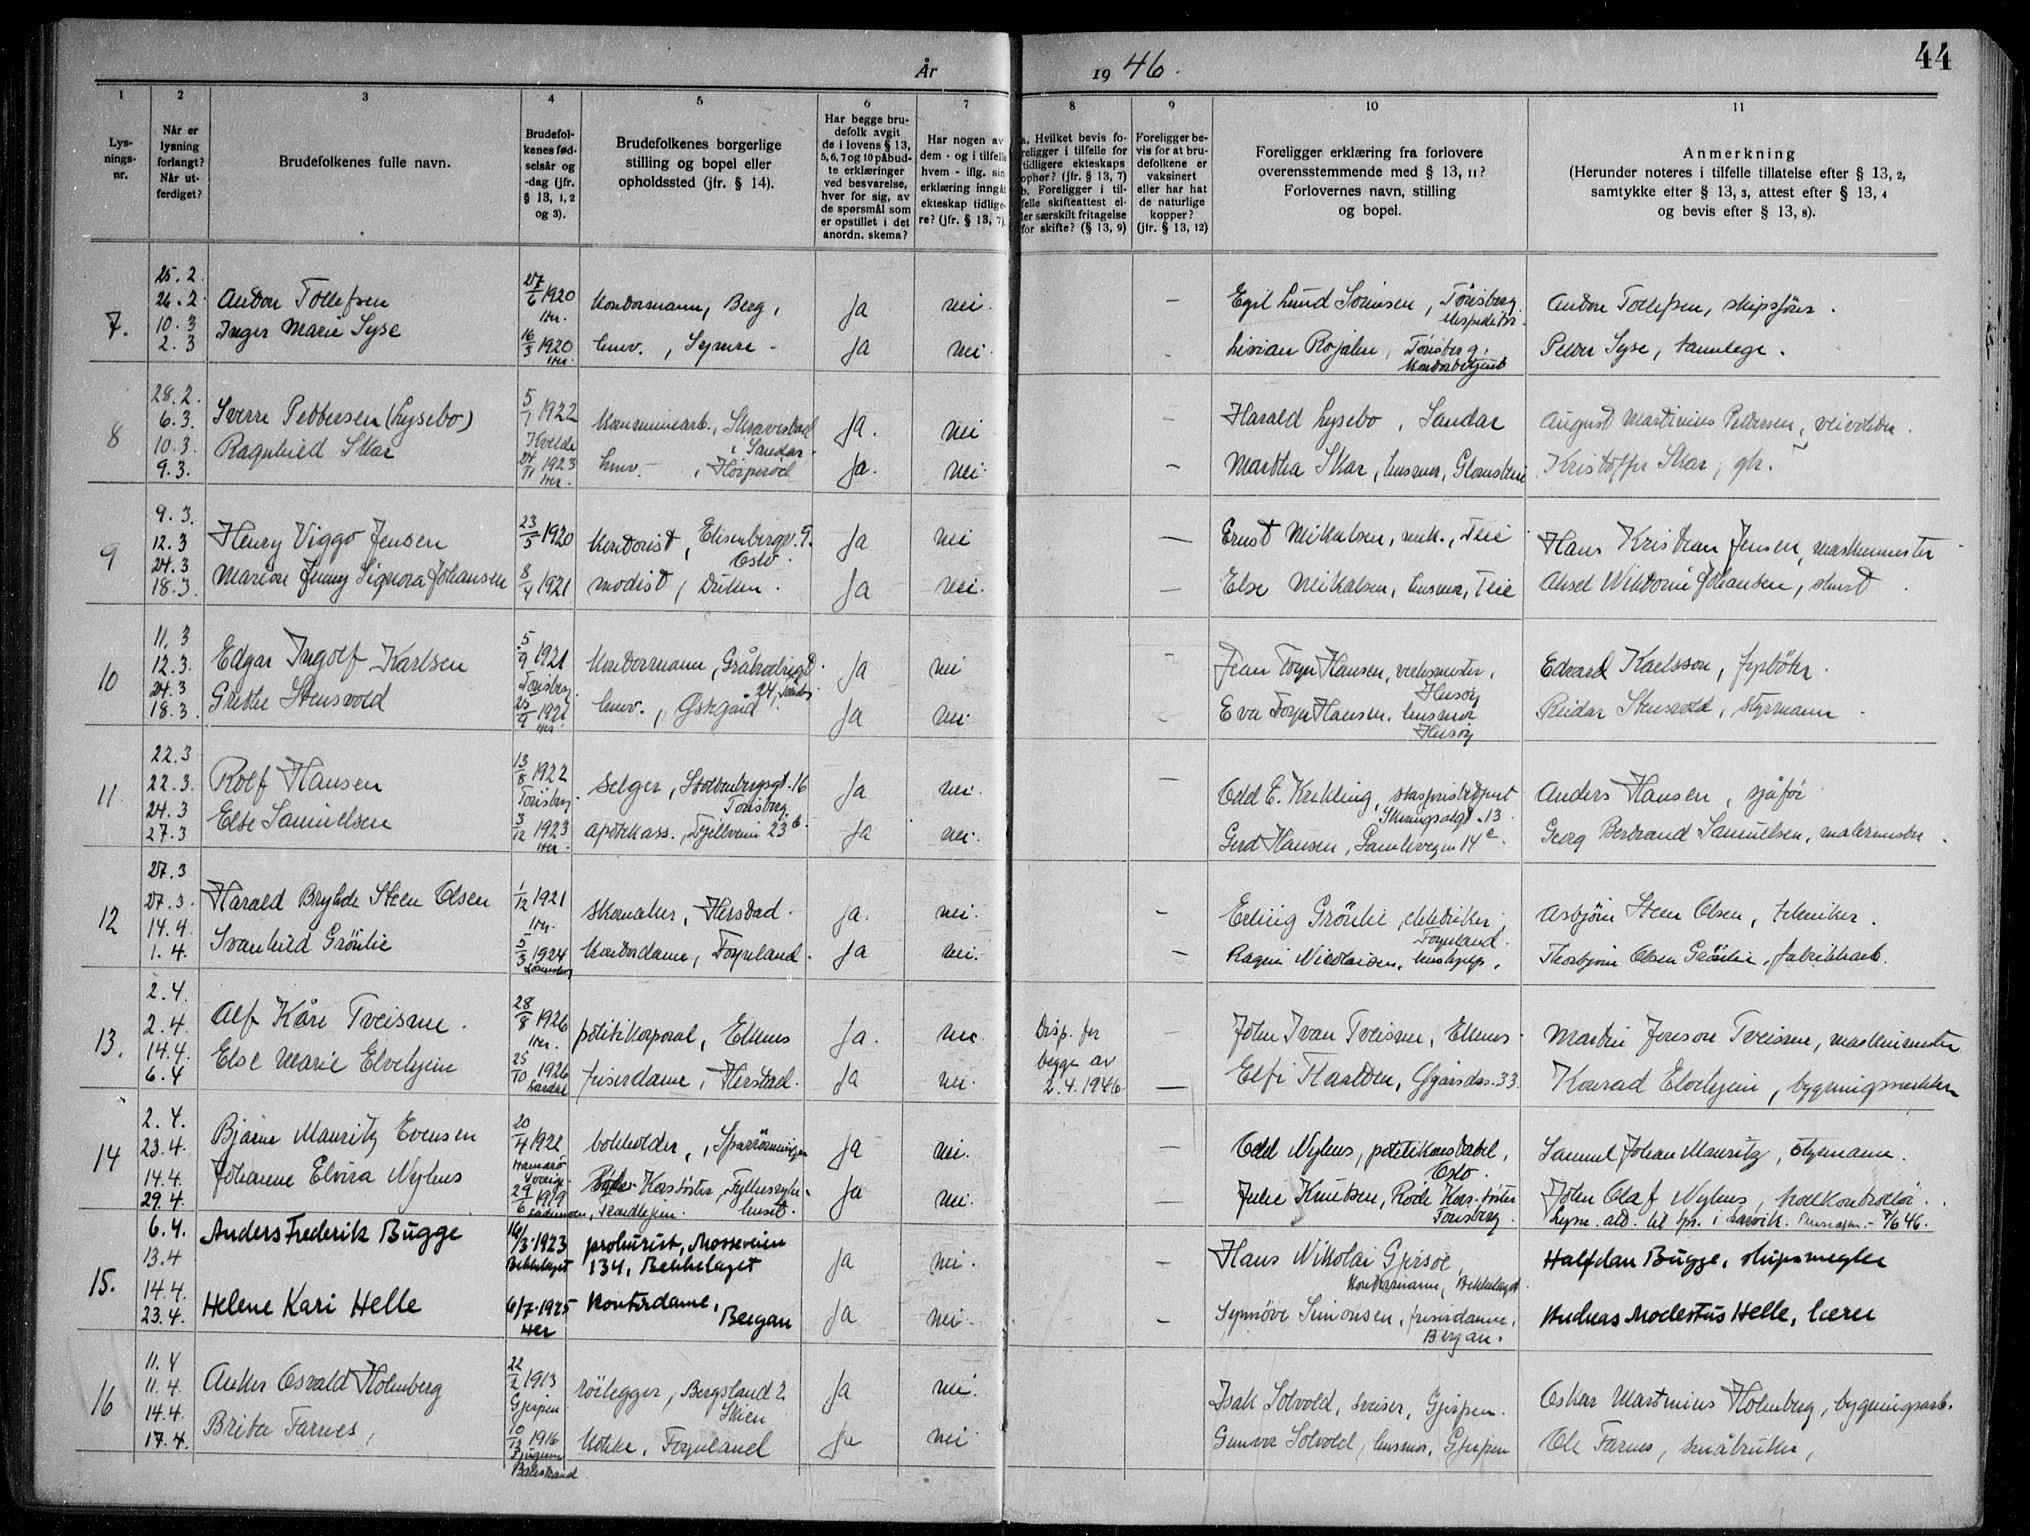 44
År 1946.
1 2 3 4 5 6 7 8 9 10 11
Lys-
nings-
nr.
Når er
lysning
forlangt?
Når ut-
ferdiget?
Brudefolkenes fulle navn.
Brudefol-
kenes fød-
selsår og
-dag (jfr.
§ 13, 1, 2
og 3).
Brudefolkenes borgerlige
stilling og bopel eller
opholdssted (jfr. § 14).
Har begge bru-
defolk avgit
de i lovens § 13,
5, 6, 7 og 10 påbud-
te erklæringer
ved besvarelse,
hver for sig, av
de spørsmål som
er opstillet i det
anordn. skema?
Har nogen av
dem - og i tilfelle
hvem - iflg. sin
erklæring inngått
ekteskap tidlige-
re? (jfr. § 13, 7).
a. Hvilket bevis fo-
religger i tilfelle for
tidligere ekteskaps
ophør? (jfr. § 13, 7)
b. Foreligger i til-
felle skifteattest el-
ler særskilt fritagelse
for skifte? (§ 13, 9)
Foreligger be-
vis for at bru-
defolkene er
vaksinert
eller har hat
de naturlige
kopper?
(jfr. § 13, 12)
Foreligger erklæring fra forlovere
overensstemmende med § 13, 11?
Forlovernes navn, stilling
og bopel.
Anmerkning
(Herunder noteres i tilfelle tillatelse efter § 13, 2,
samtykke efter § 13, 3, attest efter § 13, 4
og bevis efter § 13, 8).
7.
25.2.
26.2
10.3
2.3
Anton Tollefsen 27/6 1920 Her. Kontormann, Berg, Ja nei. – Egil Lund Sørensen, Tønsberg ekspeditør. Anton Tollefsen, skipsfører.
Inger Marie Syse 16/3 1920 Her. husv., Ja nei. – Tønsberg, Kontorbetjent Peder Syse, tannlege.
8
28.2.
6.3.
10.3.
9.3.
Sverre Pettersen (Lysebo) 5/7 1922 Kvelde Kommunearb., Skravestad i Sandar. Ja. nei – Harald Lysebo, Sandar August Martinius Pettersen,
Ragnhild Skar 24/11 1923 Her. husv. Ja. nei. – Martha Skar, husmor, Kristoffer Skar, gbr.
9
9.3.
12.3
24.3
18.3.
Henry Viggo Jensen 23/5 1920 Kontorist, Elisenbergv. 9. Oslo. Ja nei – Ernst Mikalsen, mek., Teie Hans Kristian Jensen, maskinmester
Marion Jenny Signora Johansen 8/4 1921 modist, Ja nei. – Else Mikalsen, husmor, Teie Johansen,
10
11.3
12.3.
24.3
18.3.
Edgar Ingolf Karlsen 5/9 1921 Tønsberg. Kontormann, 24, Ja nei – Jean Foyn Hansen, verksmester, Husøy Edvard Karlsson, fyrbøter.
Grethe Stensvold 25/9 1921 Her. husv., Ørsgård Ja nei. – Eva Foyn Hansen, husmor Husøy Reidar Stensvold, styrmann.
11
22.3
22.3.
24.3
27.3
Rolf Hansen 13/8 1922 Tønsberg. selger, Stoltenbergsgt. 16 Tønsberg. Ja nei. – Odd E. Krekling, 13 Anders Hansen, sjåfør
Else Samuelsen 3/12 1923 Her. apotekass., Fjellveien 23b. Ja nei. Gerd Hansen, Gamleveien 14c. Georg Bertrand Samuelsen, malermester.
12
27.3
27.3.
14.4.
1.4.
Harald Bryhde Steen Olsen 1/12 1921 Her. skomaker, Herstad. Ja. nei. – Erling Grönlie, elektriker, Foynland. Asbjörn Steen Olsen, tekniker.
Svanhild Grönlie 5/3 1924 Kontordame, Foynland. Ja nei. – Ragni Nicolaisen, hushjelp, Thorbjörn Olsen Grönlie, fabrikkarb.
13.
2.4.
2.4.
14.4.
6.4
Alf Kåre Tveisme. 28/8 1926 Her. politikorporal, Ekenes Ja. nei Disp. for begge av 2.4.1946. – John Ivan Tveisme, Ekenes. Martin Tveisme, maskinmester
Else Marie Elvehjem 25/10 1926 frisördame, Herstad. Ja nei. – Elfi 33. Konrad Elvehjem,
14
2.4.
23.4.
14.4.
29.4.
Bjarne Mauritz Evensen 20/4 1921 Hamarø Sverige bokholder, Ja nei. – Odd Nyhus, politikonstabel, Oslo. Samuel Johan Mauritz, styrmann.
Johanne Elvira Nyhus 29/6 1919 Ja nei. – Julie Knutsen, Røde Kors søster Tønsberg. John Olaf Nyhus, tollkontrollør.
15.
6.4.
13.4
14.4.
23.4.
Anders Frederik Bugge 16/3.1923 Bekkelaget prokurist, Mosseveien 134, Bekkelaget Ja nei. – Hans Nikolai Gjersøe, Kontormann, Bekkelaget Halfdan Bugge, skipsmegler
Helene Kari Helle 6/7.1925 Her Kontordame, Bergan Ja nei. – Synnöve Simonsen, frisördame, Bergan. Andreas Modestus Helle, lærer
16
11.4
11.4.
14.4.
17.4.
Anker Osvald Holmberg 22/2 1913 Gjerpen. rörlegger, Bergsland 2 Skien Ja nei. Isak Solvold, sveiser, Gjerpen. Oskar Martinius Holmberg, bygningsarb.
Brita Farnes, 10/12 1916 Balestrand Kokke, Foynland Ja nei Gunvor Solvold, husmor, Gjerpen Ole Farnes, småbruker,